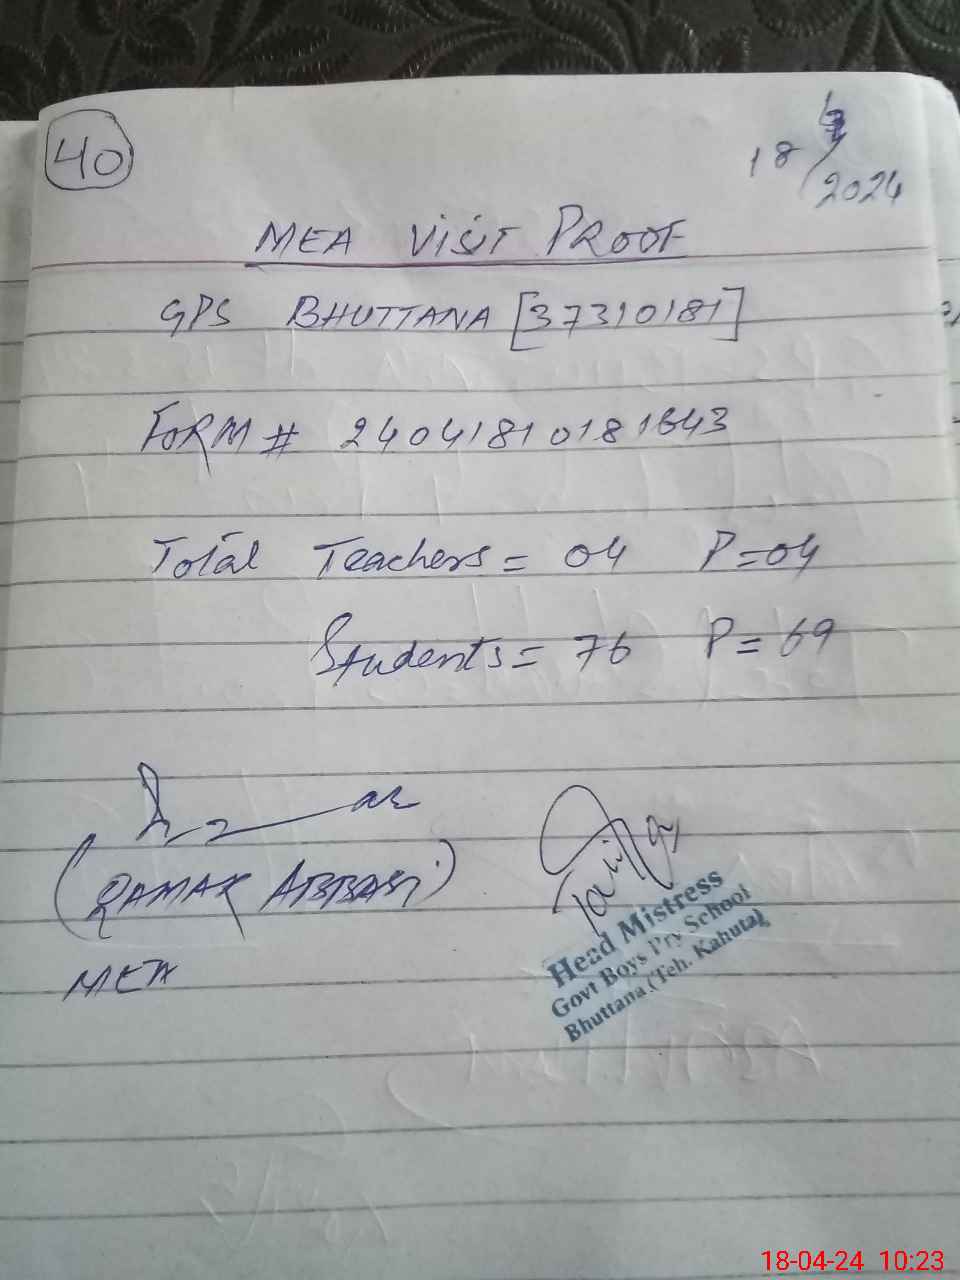 40
18/4/2024
MEA VISIT PROOF
GPS BHUTTANA [37310181]
FORM # 24041810181643
Total Teachers = 04 P=04
Students = 76 P=69
(QAMAR ABBASI)
MEA
Head Mistress
Govt Boys Pry School
Bhuttana (Teh. Kahuta)
18-04-24 10:23